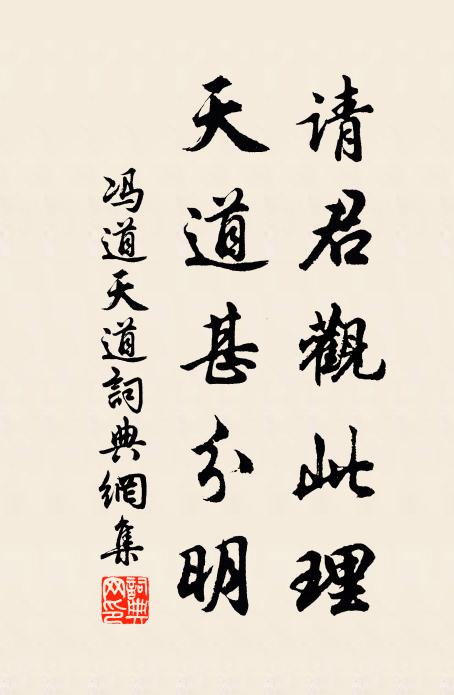 请君觀此理
天道甚分明
冯道天道詞典網集
詞典网印